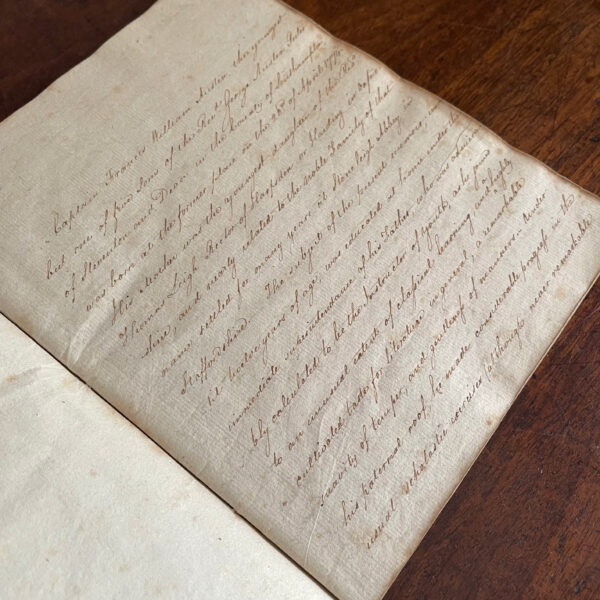 Captain Francis William Austen the youngest
but one of five Sons of the Revd. George Austen Rector
of Steventon and Deane in the County of Southampton
was born at the former place on the 23d of April 1774
His Mother was the youngest daughter of the Revd
Thomas Leigh Rector of Harpsden nr Henley in Oxford
shire, and nearly related to the noble Family of that
name settled for many years at Stone leigh Abbey in
Staffordshire. The subject of the present memoir,
12 twelve years of age, was educated at home under the
immediate superintendance of his Father, who was admira
bly calculated to be the Instructor of youth, as he joined
to an unusual extent of classical learning and a highly
cultivated taste for literature in general a remarkable
suavity of temper, and gentleness of manners. Under
his paternal roof, he made considerable progress in the
usual scholastic exercises (although more remarkable